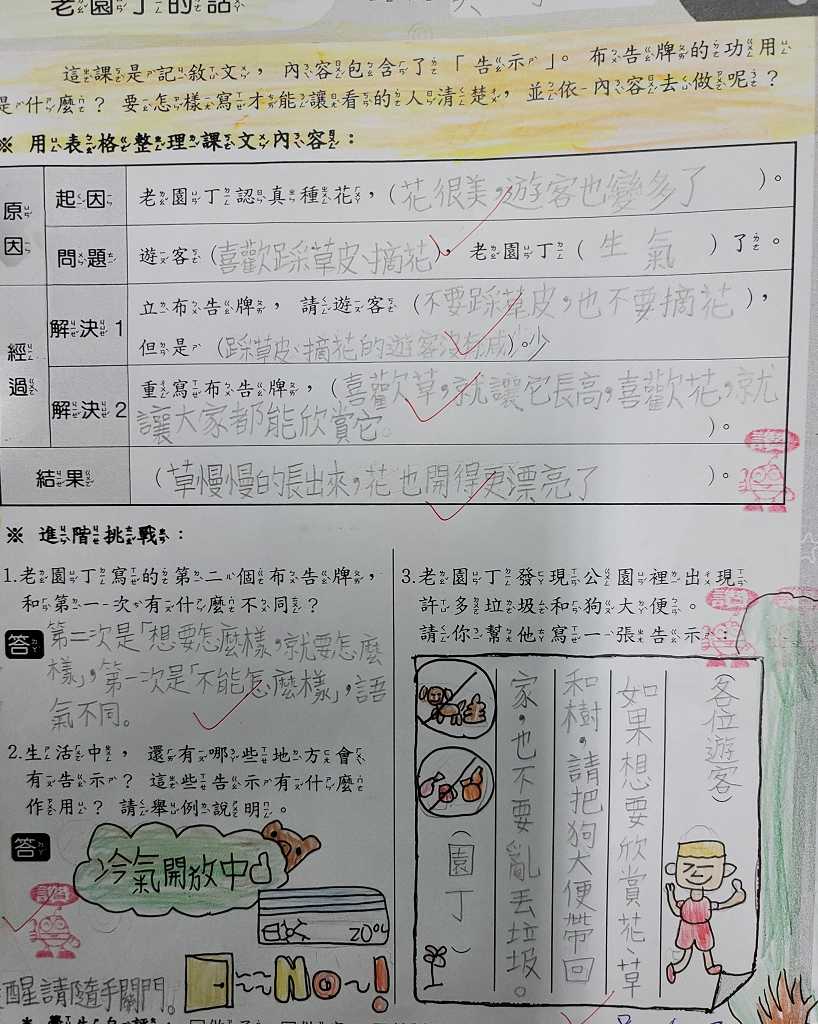 老園丁的話
這課是記敘文，內容包含了「告示」。布告牌的功用
是什麼？要怎樣寫才能讓看的人清楚，並依內容去做呢？
※ 用表格整理課文內容：
原因
起因
老園丁認真種花，（花很美，遊客也變多了）。
問題
遊客（喜歡踩草皮、摘花），老園丁（生氣）了。
經過
解決1
立布告牌，請遊客（不要踩草皮，也不要摘花），
但是（踩草皮、摘花的遊客沒有減少）。
解決2
重寫布告牌，（喜歡草，就讓它長高，喜歡花，就
讓大家都能欣賞它。）。
結果
（草慢慢的長出來，花也開得更漂亮了）。
※ 進階挑戰：
1.老園丁寫的第二個布告牌，
和第一次有什麼不同？
答 第二次是「想要怎麼樣，就要怎麼
樣」，第一次是「不能怎麼樣」，語
氣不同。
2.生活中，還有哪些地方會
有告示？這些告示有什麼
作用？請舉例說明。
答
冷氣開放中
20℃
醒請隨手關門。
No~!
3.老園丁發現公園裡出現
許多垃圾和狗大便。
請你幫他寫一張告示：
（各位遊客）
如果想要欣賞花草
和樹，請把狗大便帶回
家，也不要亂丟垃圾。
（園丁）